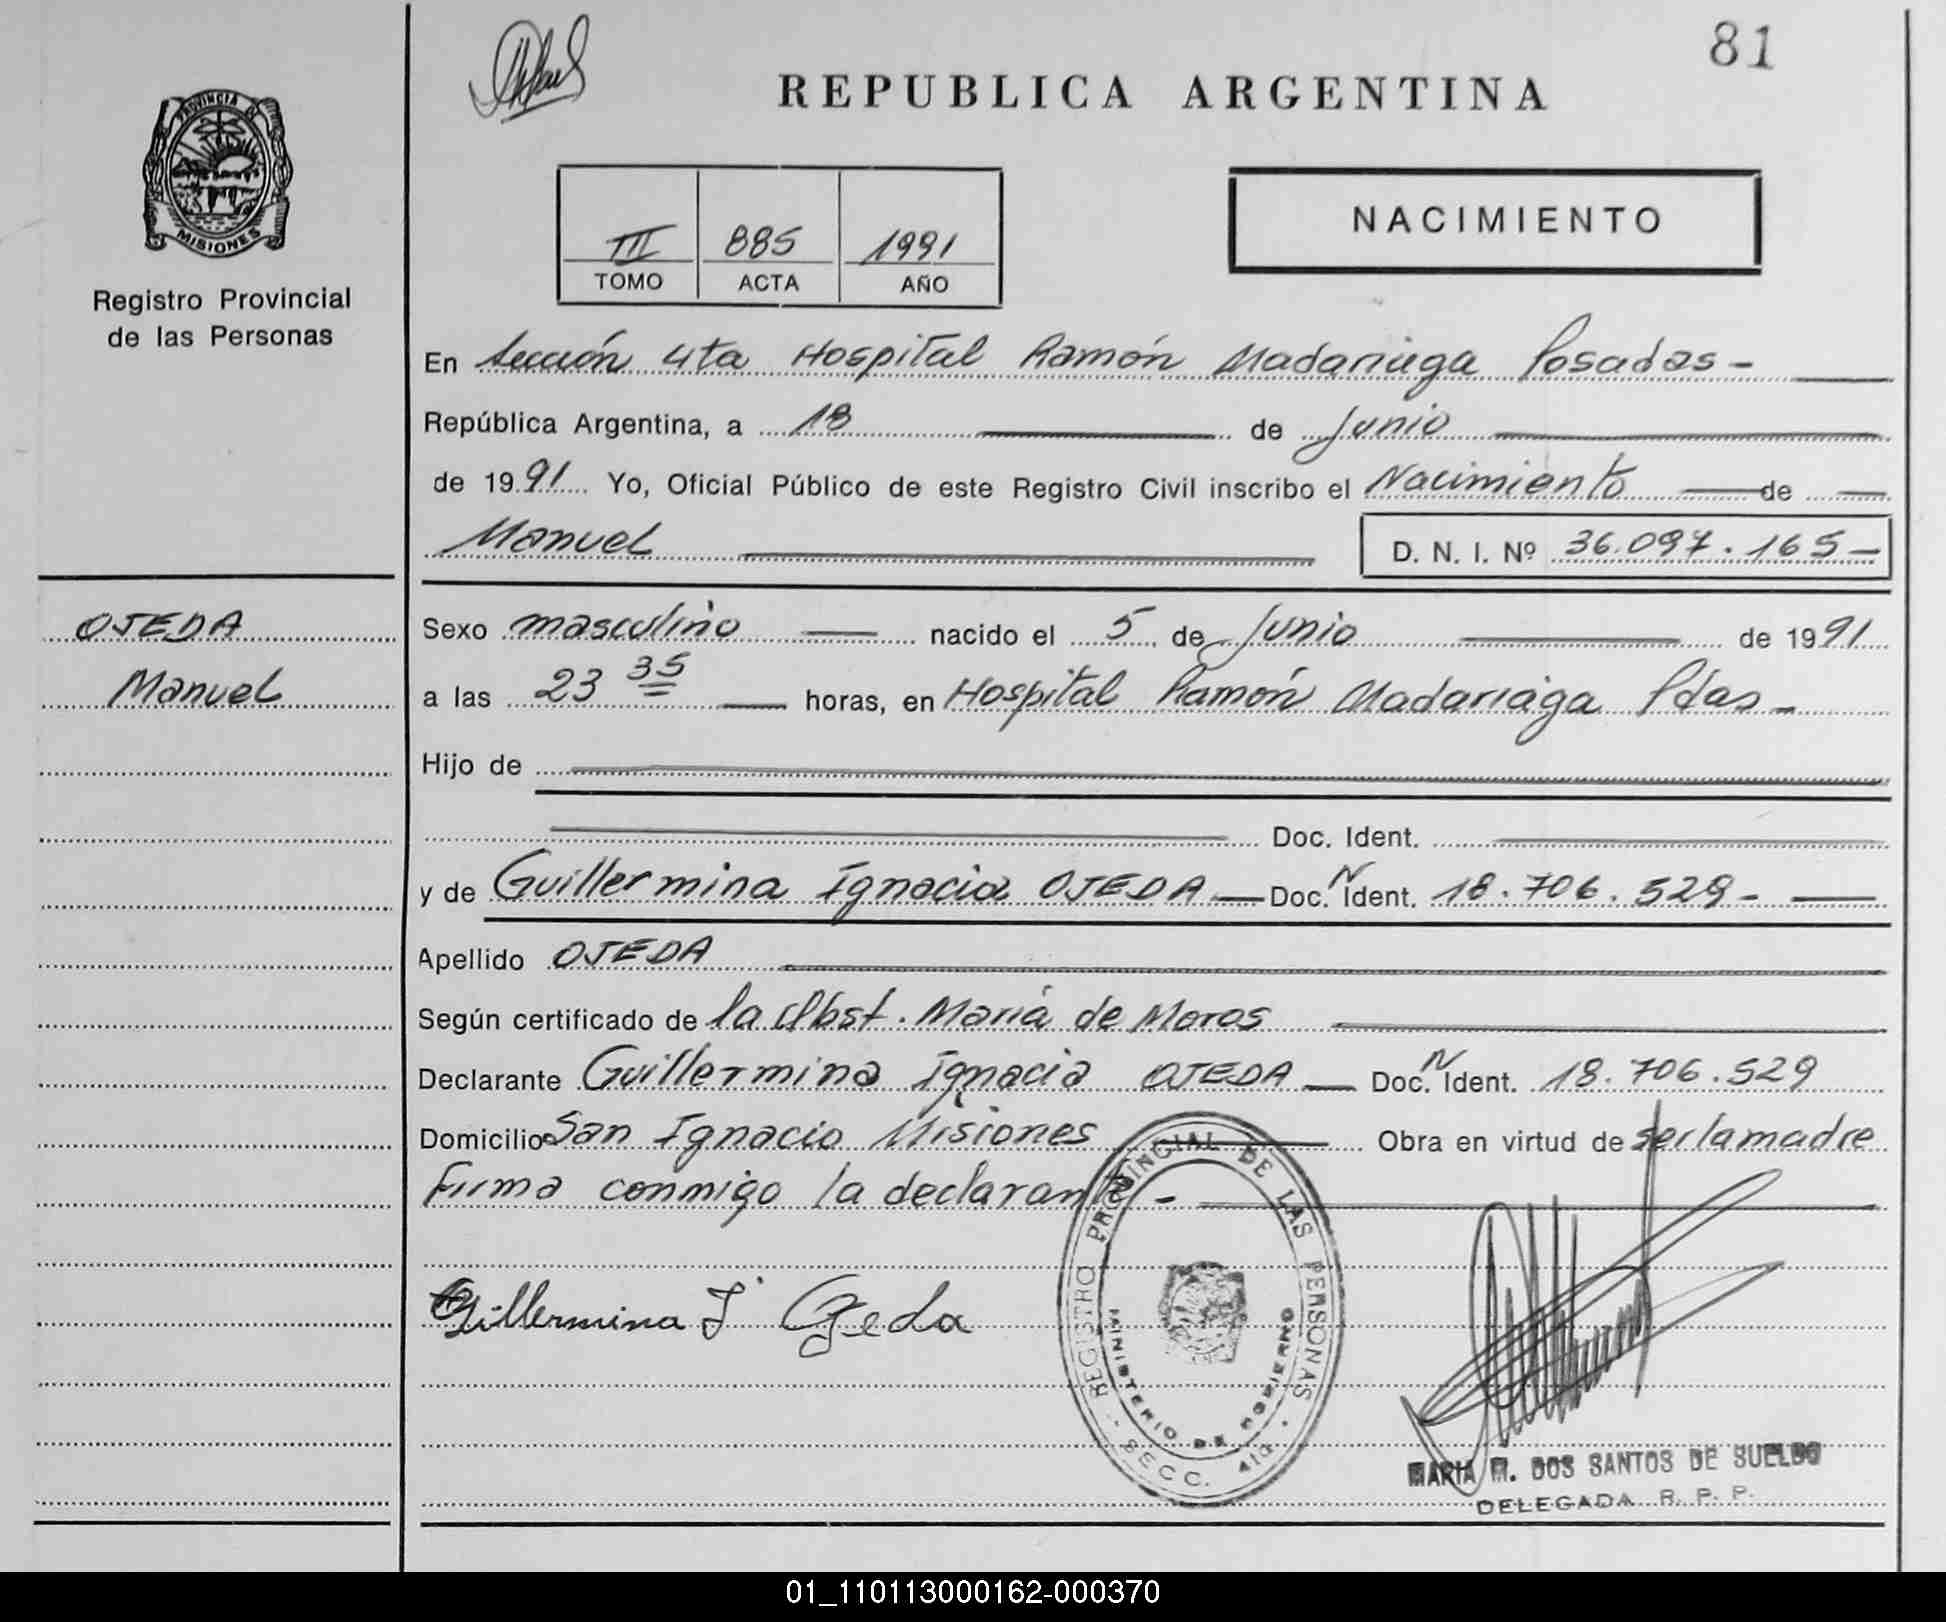 81
REPUBLICA ARGENTINA
PROVINCIA DE
MISIONES
Registro Provincial
de las Personas
III 885 1991
TOMO ACTA AÑO
NACIMIENTO
En Sección 4ta Hospital Ramón Madariaga Posadas -
República Argentina, a 18 de Junio
de 1991 Yo, Oficial Público de este Registro Civil inscribo el Nacimiento de
Manuel D. N. I. Nº 36.097.165 -
OJEDA
Manuel
Sexo masculino nacido el 5 de Junio de 1991
a las 23 35 horas, en Hospital Ramón Madariaga Pdas -
Hijo de
Doc. Ident.
y de Guillermina Ignacia OJEDA - Doc. N Ident. 18.706.529 -
Apellido OJEDA
Según certificado de la Obst. María de Moros
Declarante Guillermina Ignacia OJEDA - Doc. N Ident. 18.706.529
Domicilio San Ignacio Misiones Obra en virtud de ser la madre
Firma conmigo la declarante -
Guillermina I Ojeda
REGISTRO PROVINCIAL DE LAS PERSONAS
MINISTERIO DE GOBIERNO
SECC. 4ta
MARIA M. DOS SANTOS DE SUELDO
DELEGADA R. P. P.
01_110113000162-000370